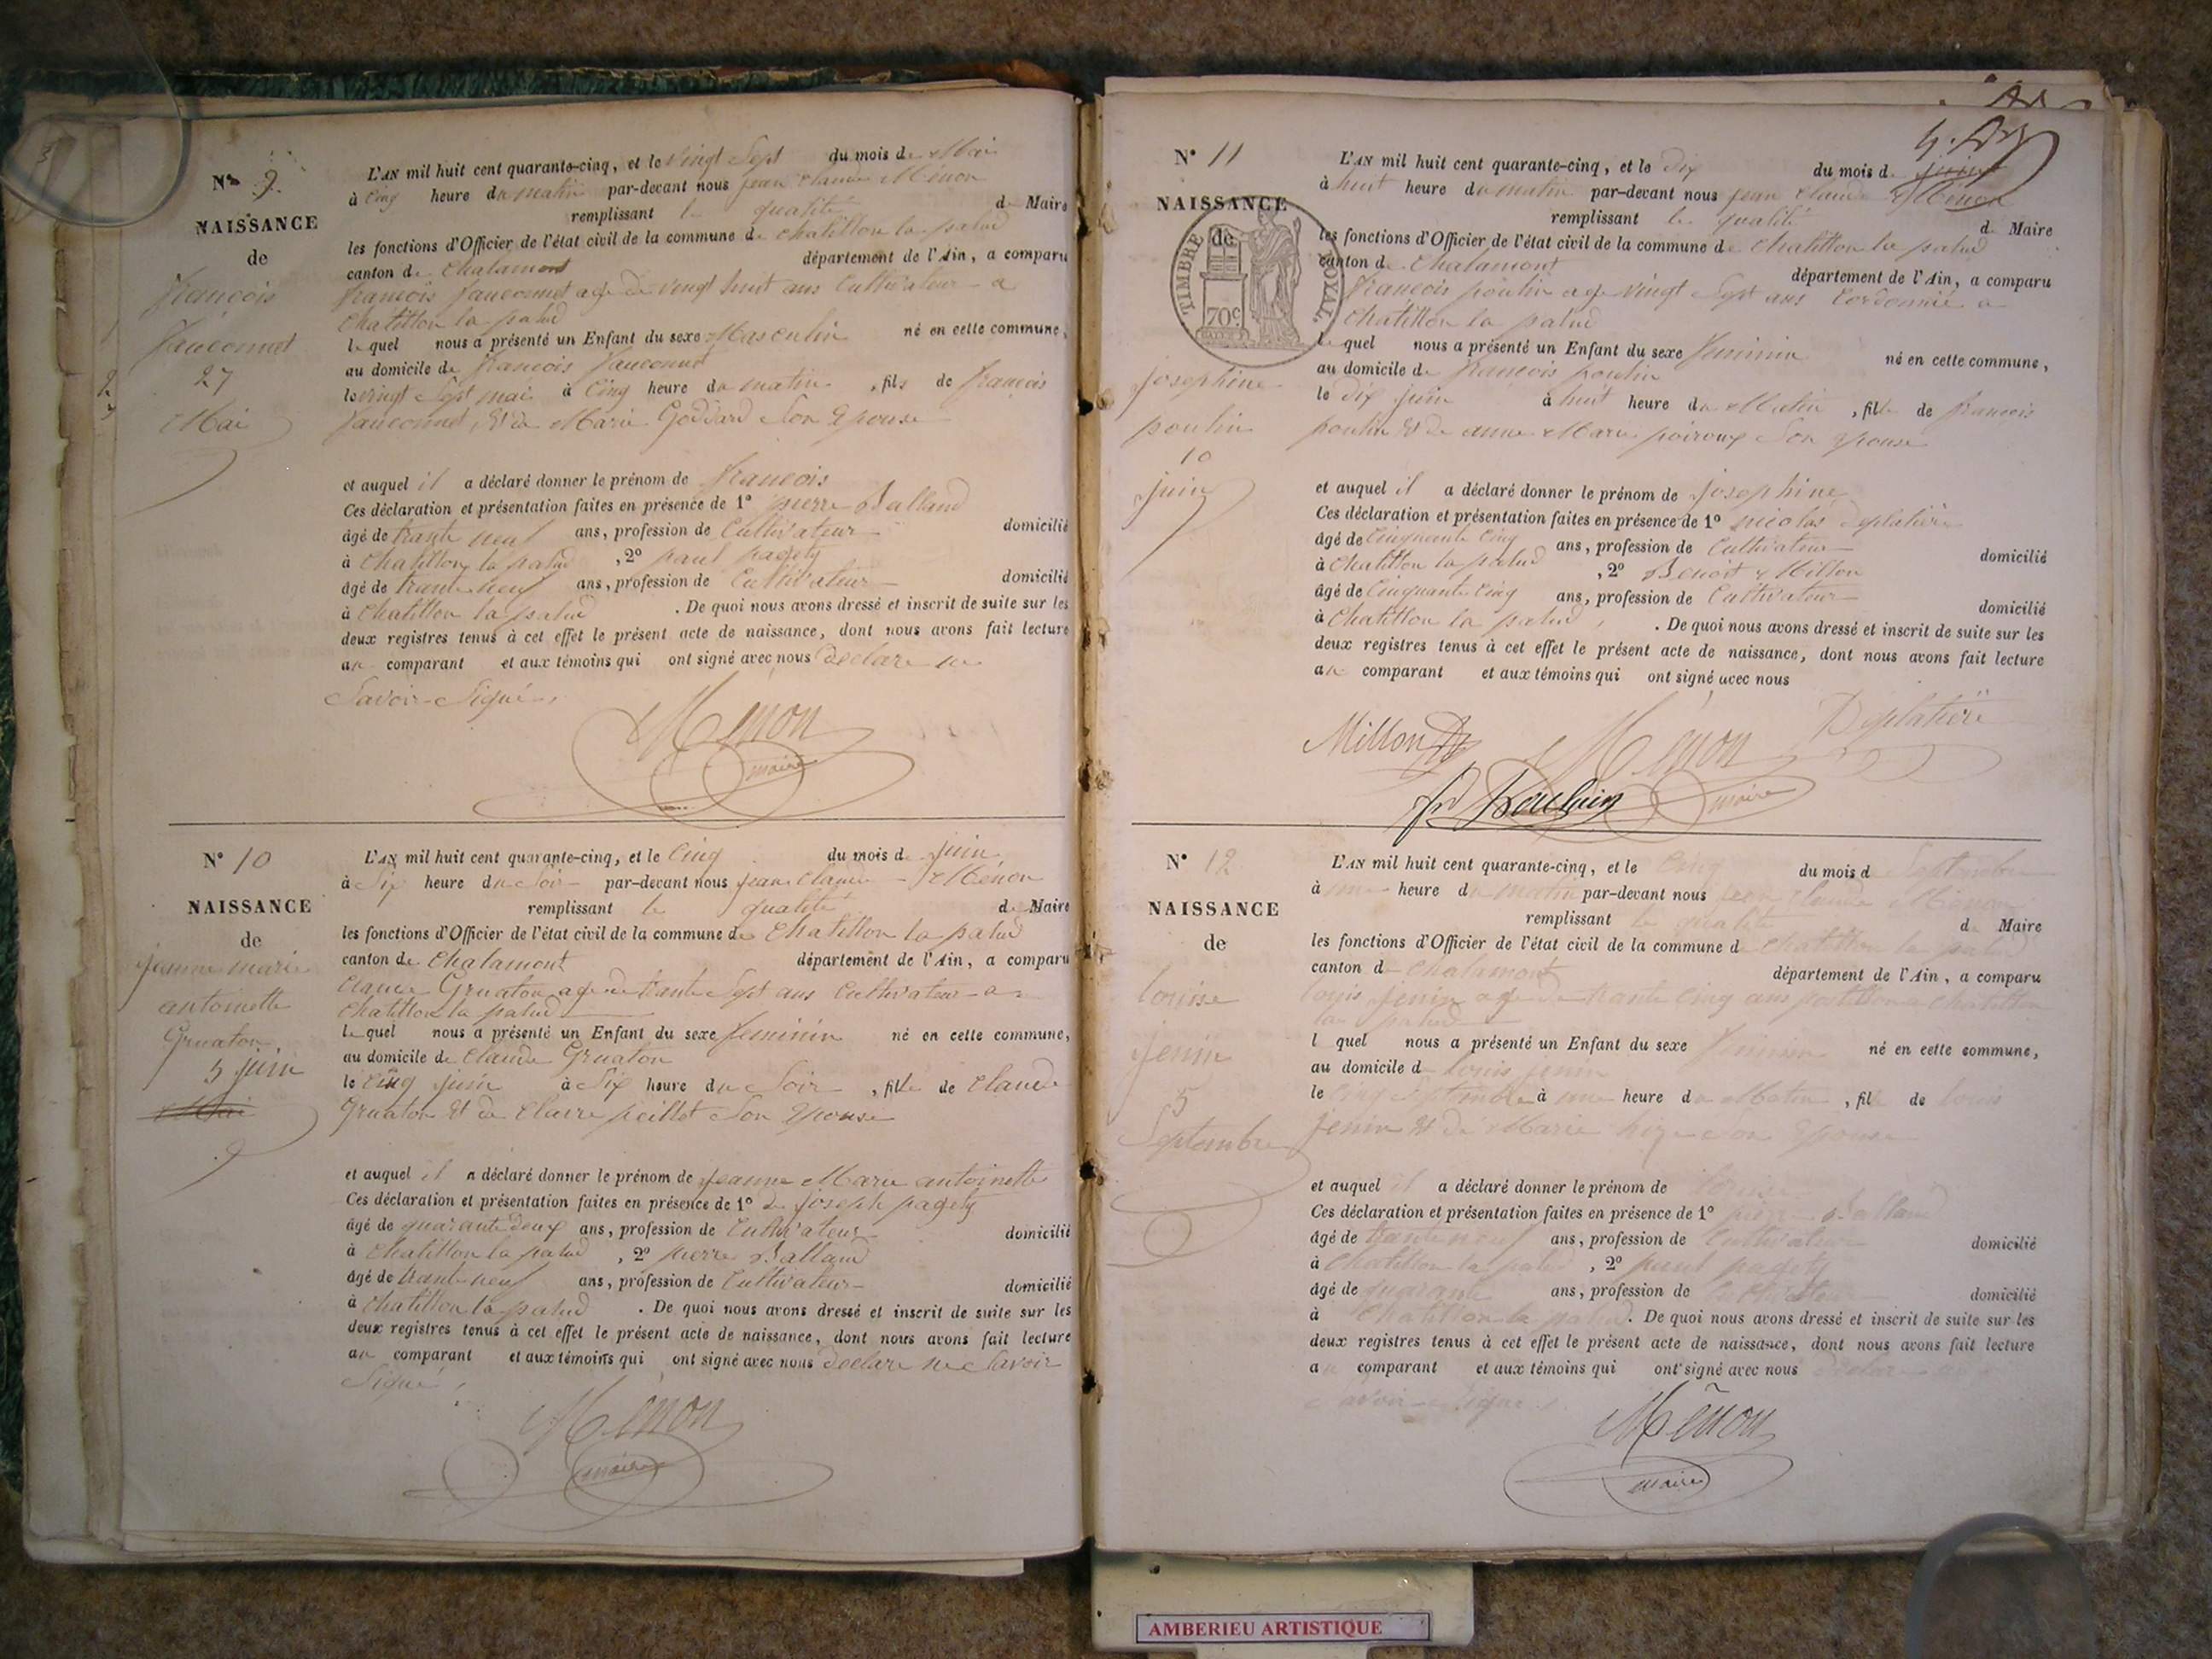 N° 9
NAISSANCE
de
François
Jauconnet
27
Mai
L'AN mil huit cent quarante-cinq, et le vingt Sept du mois de Mai
à Cinq heure du matin par-devant nous jean Claude Ménon
remplissant la qualité de Maire
les fonctions d'Officier de l'état civil de la commune de chatillon la palud
canton de Chalamont département de l'Ain, a comparu
françois Jauconnet age de vingt huit ans Cultivateur a
Chatillon la palud
le quel nous a présenté un Enfant du sexe Masculin né en cette commune,
au domicile de françois Jauconnet
le vingt Sept mai à Cinq heure du matin, fils de françois
Jauconnet, Et de Marie Goddard Son Epouse
et auquel il a déclaré donner le prénom de françois
Ces déclaration et présentation faites en présence de 1° pierre Balland
âgé de trante neuf ans, profession de Cultivateur domicilié
à Chatillon la palud, 2° paul pagety
âgé de trante neuf ans, profession de Cultivateur domicilié
à Chatillon la palud. De quoi nous avons dressé et inscrit de suite sur les
deux registres tenus à cet effet le présent acte de naissance, dont nous avons fait lecture
au comparant et aux témoins qui ont signé avec nous declare ne
Savoir Signé,
Ménon
maire
N° 10
NAISSANCE
de
jeanne marie
antoinette
Gruaton
5 juin
Mai
L'AN mil huit cent quarante-cinq, et le Cinq du mois de juin
à Six heure du Soir par-devant nous jean Claude Ménon
remplissant la qualité de Maire
les fonctions d'Officier de l'état civil de la commune de Chatillon la palud
canton de Chalamont département de l'Ain, a comparu
Claude Gruaton age de trante Sept ans Cultivateur a
Chatillon la palud
le quel nous a présenté un Enfant du sexe feminin né en cette commune,
au domicile de Claude Gruaton
le Cinq juin à Six heure du Soir, fille de Claude
Gruaton Et de Claire peillet Son Epouse
et auquel il a déclaré donner le prénom de jeanne Marie antoinette
Ces déclaration et présentation faites en présence de 1° de joseph pagety
âgé de quarante deux ans, profession de Cultivateur domicilié
à Chatillon la palud, 2° pierre Balland
âgé de trante neuf ans, profession de Cultivateur domicilié
à Chatillon la palud. De quoi nous avons dressé et inscrit de suite sur les
deux registres tenus à cet effet le présent acte de naissance, dont nous avons fait lecture
au comparant et aux témoins qui ont signé avec nous declare ne Savoir
Signé,
Ménon
maire
N° 11
NAISSANCE
de
TIMBRE ROYAL
70c
Josephine
poulin
10
juin
L'AN mil huit cent quarante-cinq, et le dix du mois de juin
à huit heure du matin par-devant nous jean Claude Ménon
remplissant la qualité de Maire
les fonctions d'Officier de l'état civil de la commune de Chatillon la palud
canton de Chalamont département de l'Ain, a comparu
françois poulin age vingt Sept ans Cordonnié a
Chatillon la palud
le quel nous a présenté un Enfant du sexe feminin né en cette commune,
au domicile de françois poulin
le dix juin à huit heure du Matin, fille de françois
poulin Et de anne Marie poiroux Son Epouse
et auquel il a déclaré donner le prénom de Josephine
Ces déclaration et présentation faites en présence de 1° nicolas Deplatière
âgé de Cinquante Cinq ans, profession de Cultivateur domicilié
à Chatillon la palud, 2° Benoit Millon
âgé de Cinquante Cinq ans, profession de Cultivateur domicilié
à Chatillon la palud. De quoi nous avons dressé et inscrit de suite sur les
deux registres tenus à cet effet le présent acte de naissance, dont nous avons fait lecture
au comparant et aux témoins qui ont signé avec nous
Millon Ménon Deplatière
maire
N° 12
NAISSANCE
de
louise
Jenin
5
Septembre
L'AN mil huit cent quarante-cinq, et le Cinq du mois de Septembre
à une heure du matin par-devant nous jean Claude Ménon
remplissant la qualité de Maire
les fonctions d'Officier de l'état civil de la commune de Chatillon la palud
canton de Chalamont département de l'Ain, a comparu
louis Jenin age de trante Cinq ans a Chatillon
la palud
l quel nous a présenté un Enfant du sexe feminin né en cette commune,
au domicile de louis Jenin
le Cinq Septembre à une heure du Matin, fille de louis
Jenin Et de Marie Son Epouse
et auquel il a déclaré donner le prénom de louise
Ces déclaration et présentation faites en présence de 1° pierre Balland
âgé de trante neuf ans, profession de Cultivateur domicilié
à Chatillon la palud, 2° paul pagety
âgé de quarante ans, profession de Cultivateur domicilié
à Chatillon la palud. De quoi nous avons dressé et inscrit de suite sur les
deux registres tenus à cet effet le présent acte de naissance, dont nous avons fait lecture
au comparant et aux témoins qui ont signé avec nous declare ne
Savoir Signé
Ménon
maire
AMBERIEU ARTISTIQUE